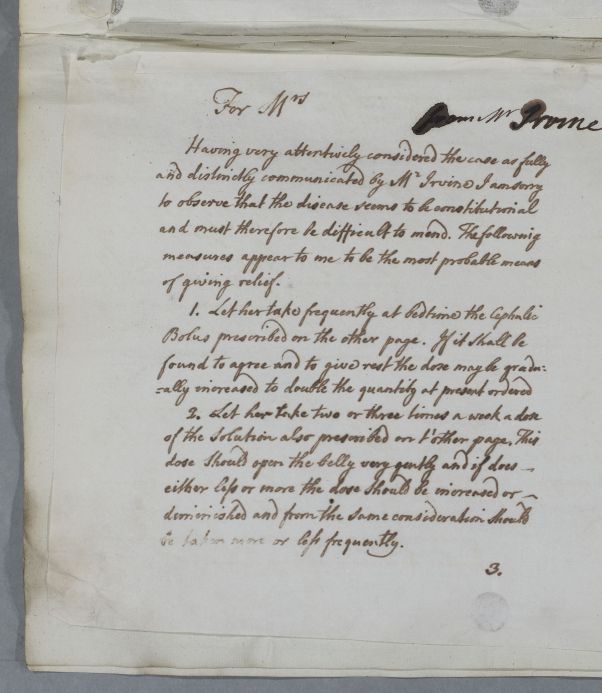 For Mrs
from Mr Irvine
Having very attentively considered the case as fully
and distinctly communicated by Mr Irvine I am sorry
to observe that the disease seems to be constitutional
and must therefore be difficult to mend. The following
measures appear to me to be the most probable means
of giving relief.
1. Let her take frequently at bedtime the Cephalic
Bolus prescribed on the other page. If it shall be
found to agree and to give rest the dose may be gradu=
=ally increased to double the quantity at present ordered
2. Let her take two or three times a week a dose
of the Solution also prescribed on t'other page. This
dose should open the belly very gently and if does
either less or more the dose should be increased or
diminished and from the same consideration should
be taken more or less frequently.
3.